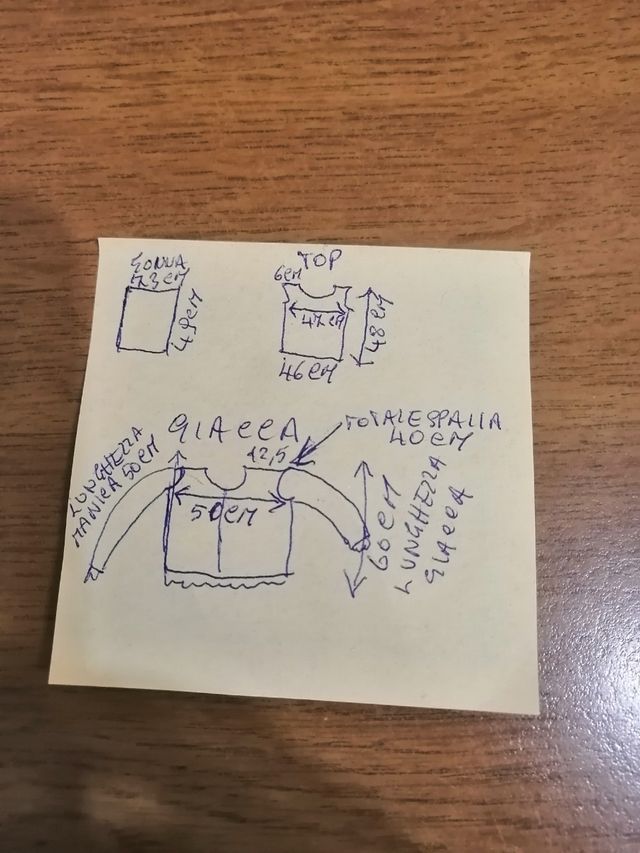 GONNA
73 CM
49CM
TOP
6CM
47 CM
48 CM
46 CM
GIACCA
12,5
TOTALE SPALLA
40 CM
LUNGHEZZA
MANICA 50 CM
50 CM
60 CM
LUNGHEZZA
GIACCA